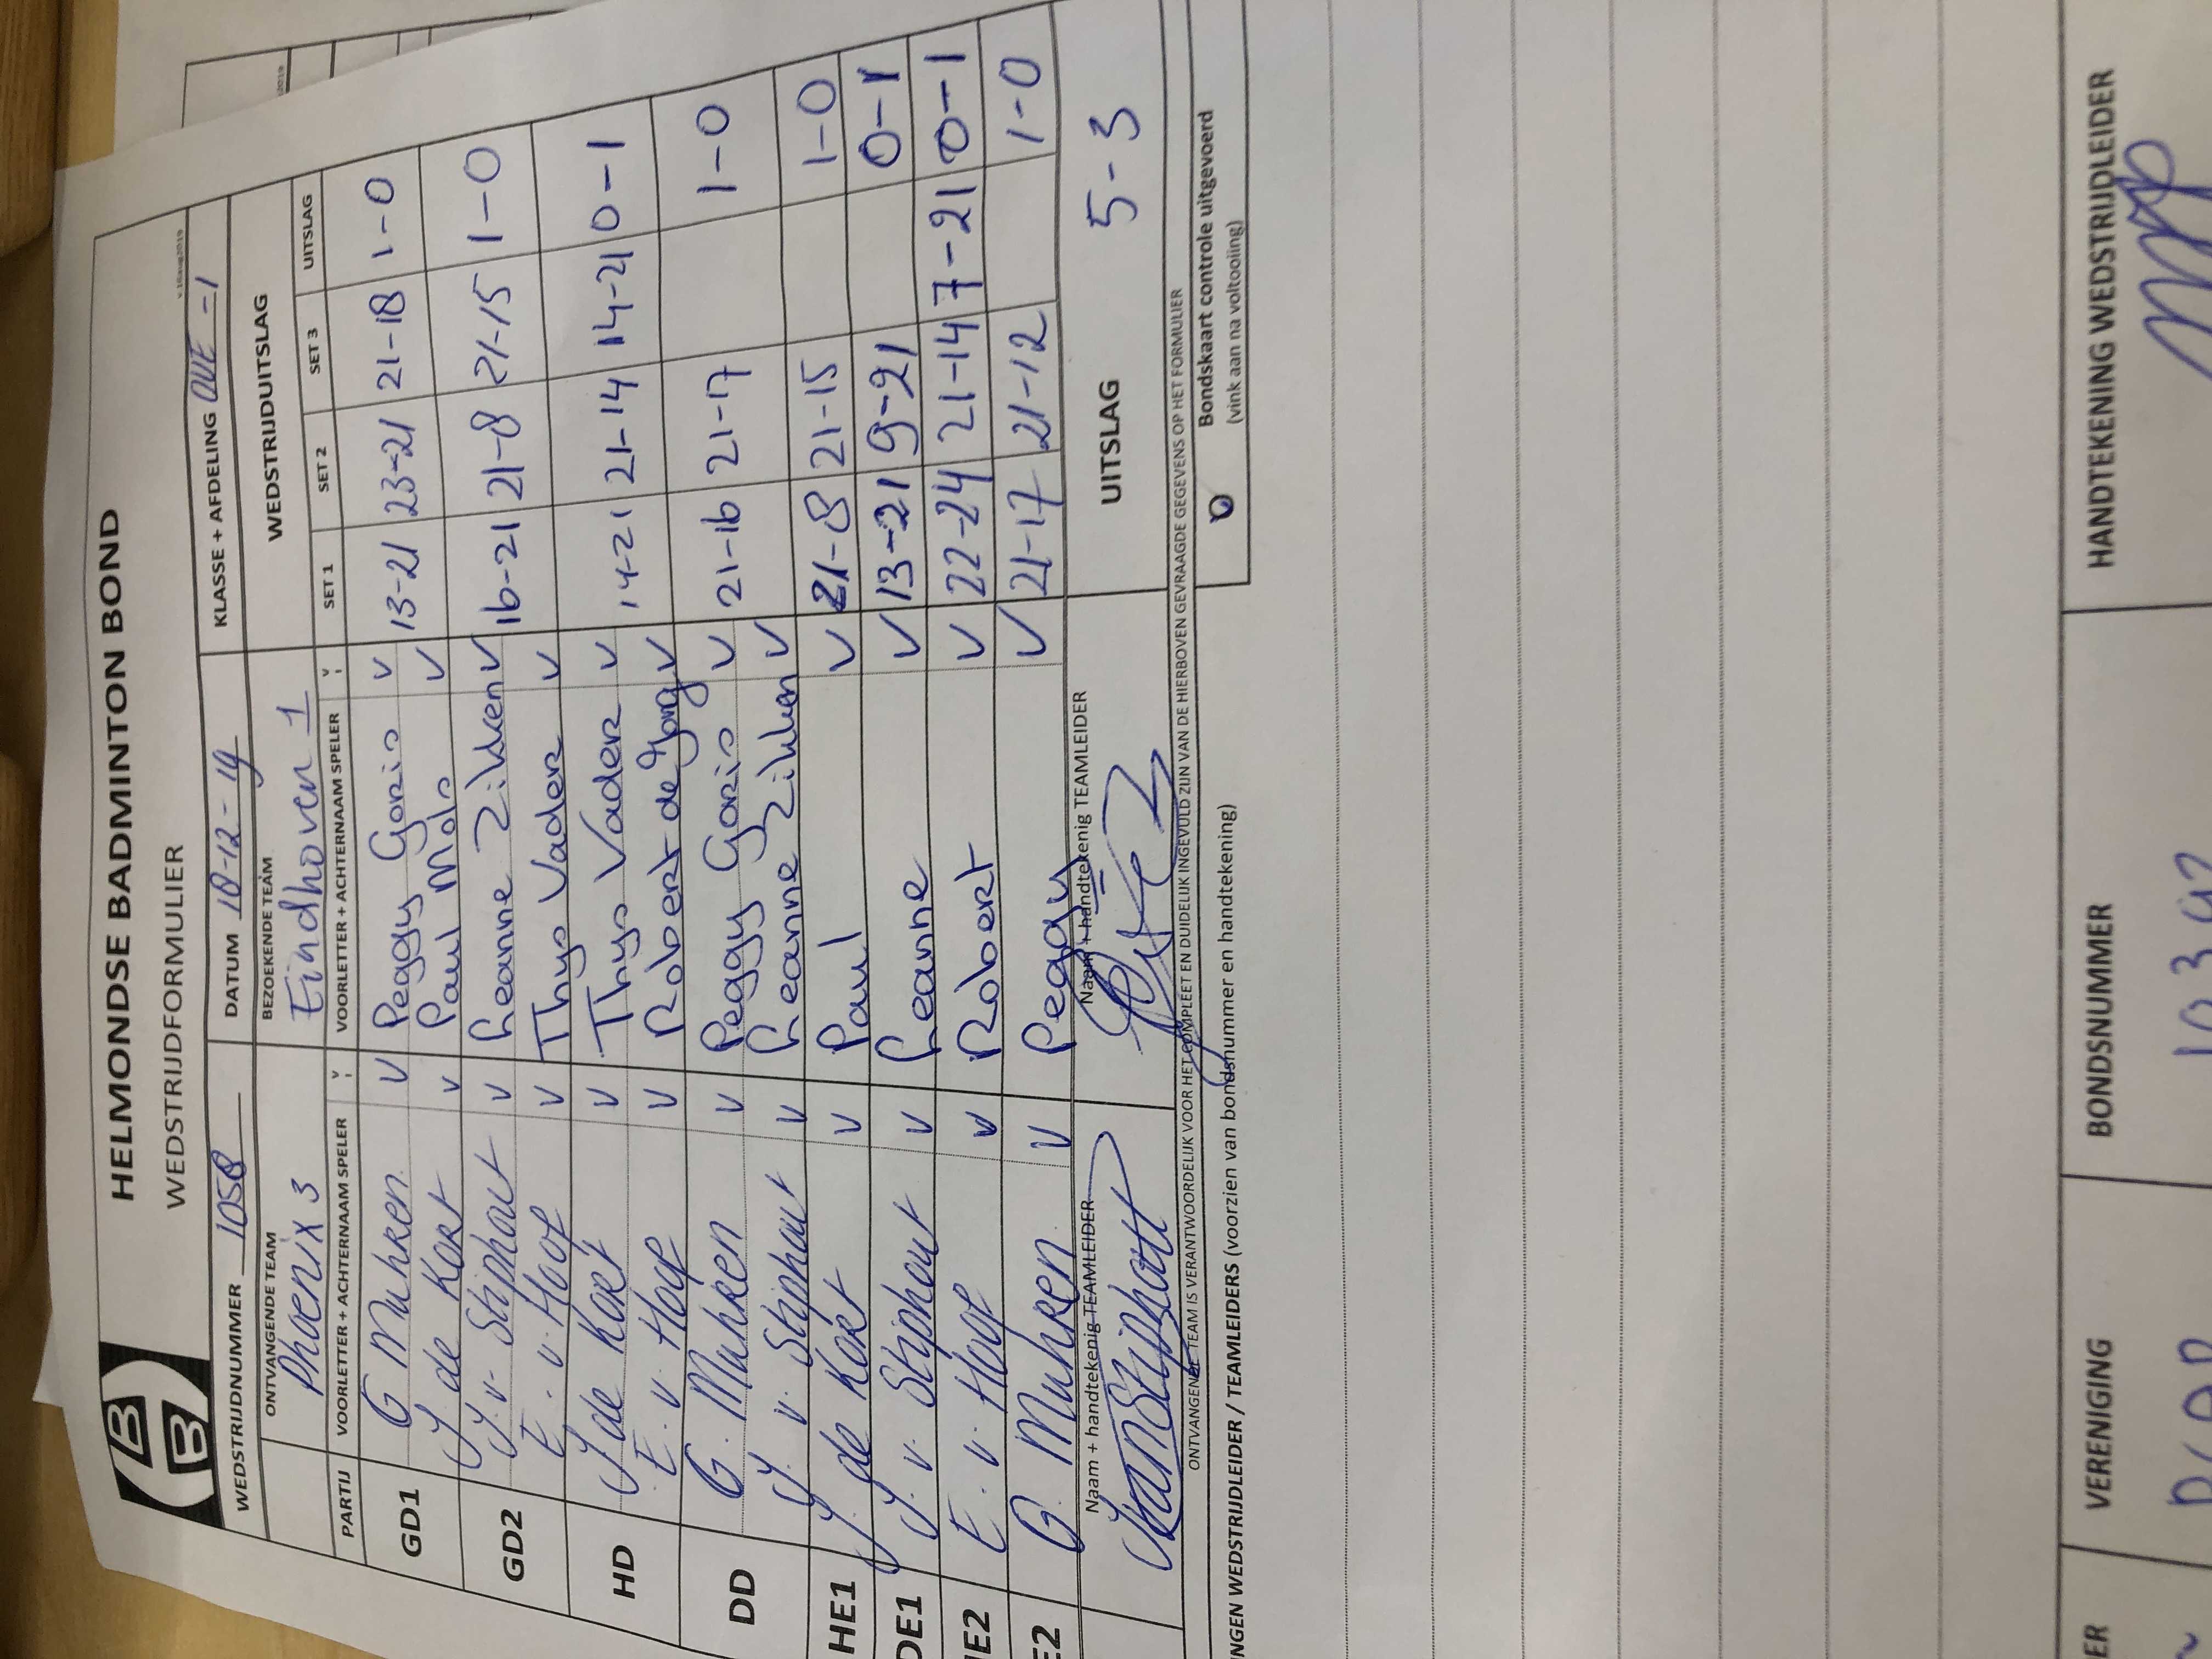 HELMONDSE BADMINTON BOND
WEDSTRIJDFORMULIER
v.16aug2019
WEDSTRIJDNUMMER 1058 DATUM 18-12-19 KLASSE + AFDELING OVE-1
ONTVANGENDE TEAM BEZOEKENDE TEAM WEDSTRIJDUITSLAG
Phoenix 3 Eindhoven 1
PARTIJ VOORLETTER + ACHTERNAAM SPELER V VOORLETTER + ACHTERNAAM SPELER V SET 1 SET 2 SET 3 UITSLAG
GD1 G Muhren V Peggy Goris V 13-21 23-21 21-18 1-0
J. de Kort V Paul Mols V
GD2 J. v. Stiphout V Leanne Zilkken V 16-21 21-8 21-15 1-0
E. v. Hoof V Thys Vader V
HD J de Kort V Thys Vader V 14-21 21-14 14-21 0-1
E. v. Hoof V Robert de Jong V
DD G. Muhren V Peggy Goris V 21-16 21-17 1-0
J. v. Stiphout V Leanne Zilkken V
HE1 J. de Kort V Paul V 21-8 21-15 1-0
DE1 J. v. Stiphout V Leanne V 13-21 9-21 0-1
HE2 E. v. Hoof V Robert V 22-24 21-14 7-21 0-1
E2 G. Muhren V Peggy V 21-17 21-12 1-0
Naam + handtekenig TEAMLEIDER Naam + handtekenig TEAMLEIDER UITSLAG 5-3
JvanStiphout
ONTVANGENDE TEAM IS VERANTWOORDELIJK VOOR HET COMPLEET EN DUIDELIJK INGEVULD ZIJN VAN DE HIERBOVEN GEVRAAGDE GEGEVENS OP HET FORMULIER
Bondskaart controle uitgevoerd
(vink aan na voltooiing)
INGEN WEDSTRIJDLEIDER / TEAMLEIDERS (voorzien van bondsnummer en handtekening)
ER VERENIGING BONDSNUMMER HANDTEKENING WEDSTRIJDLEIDER